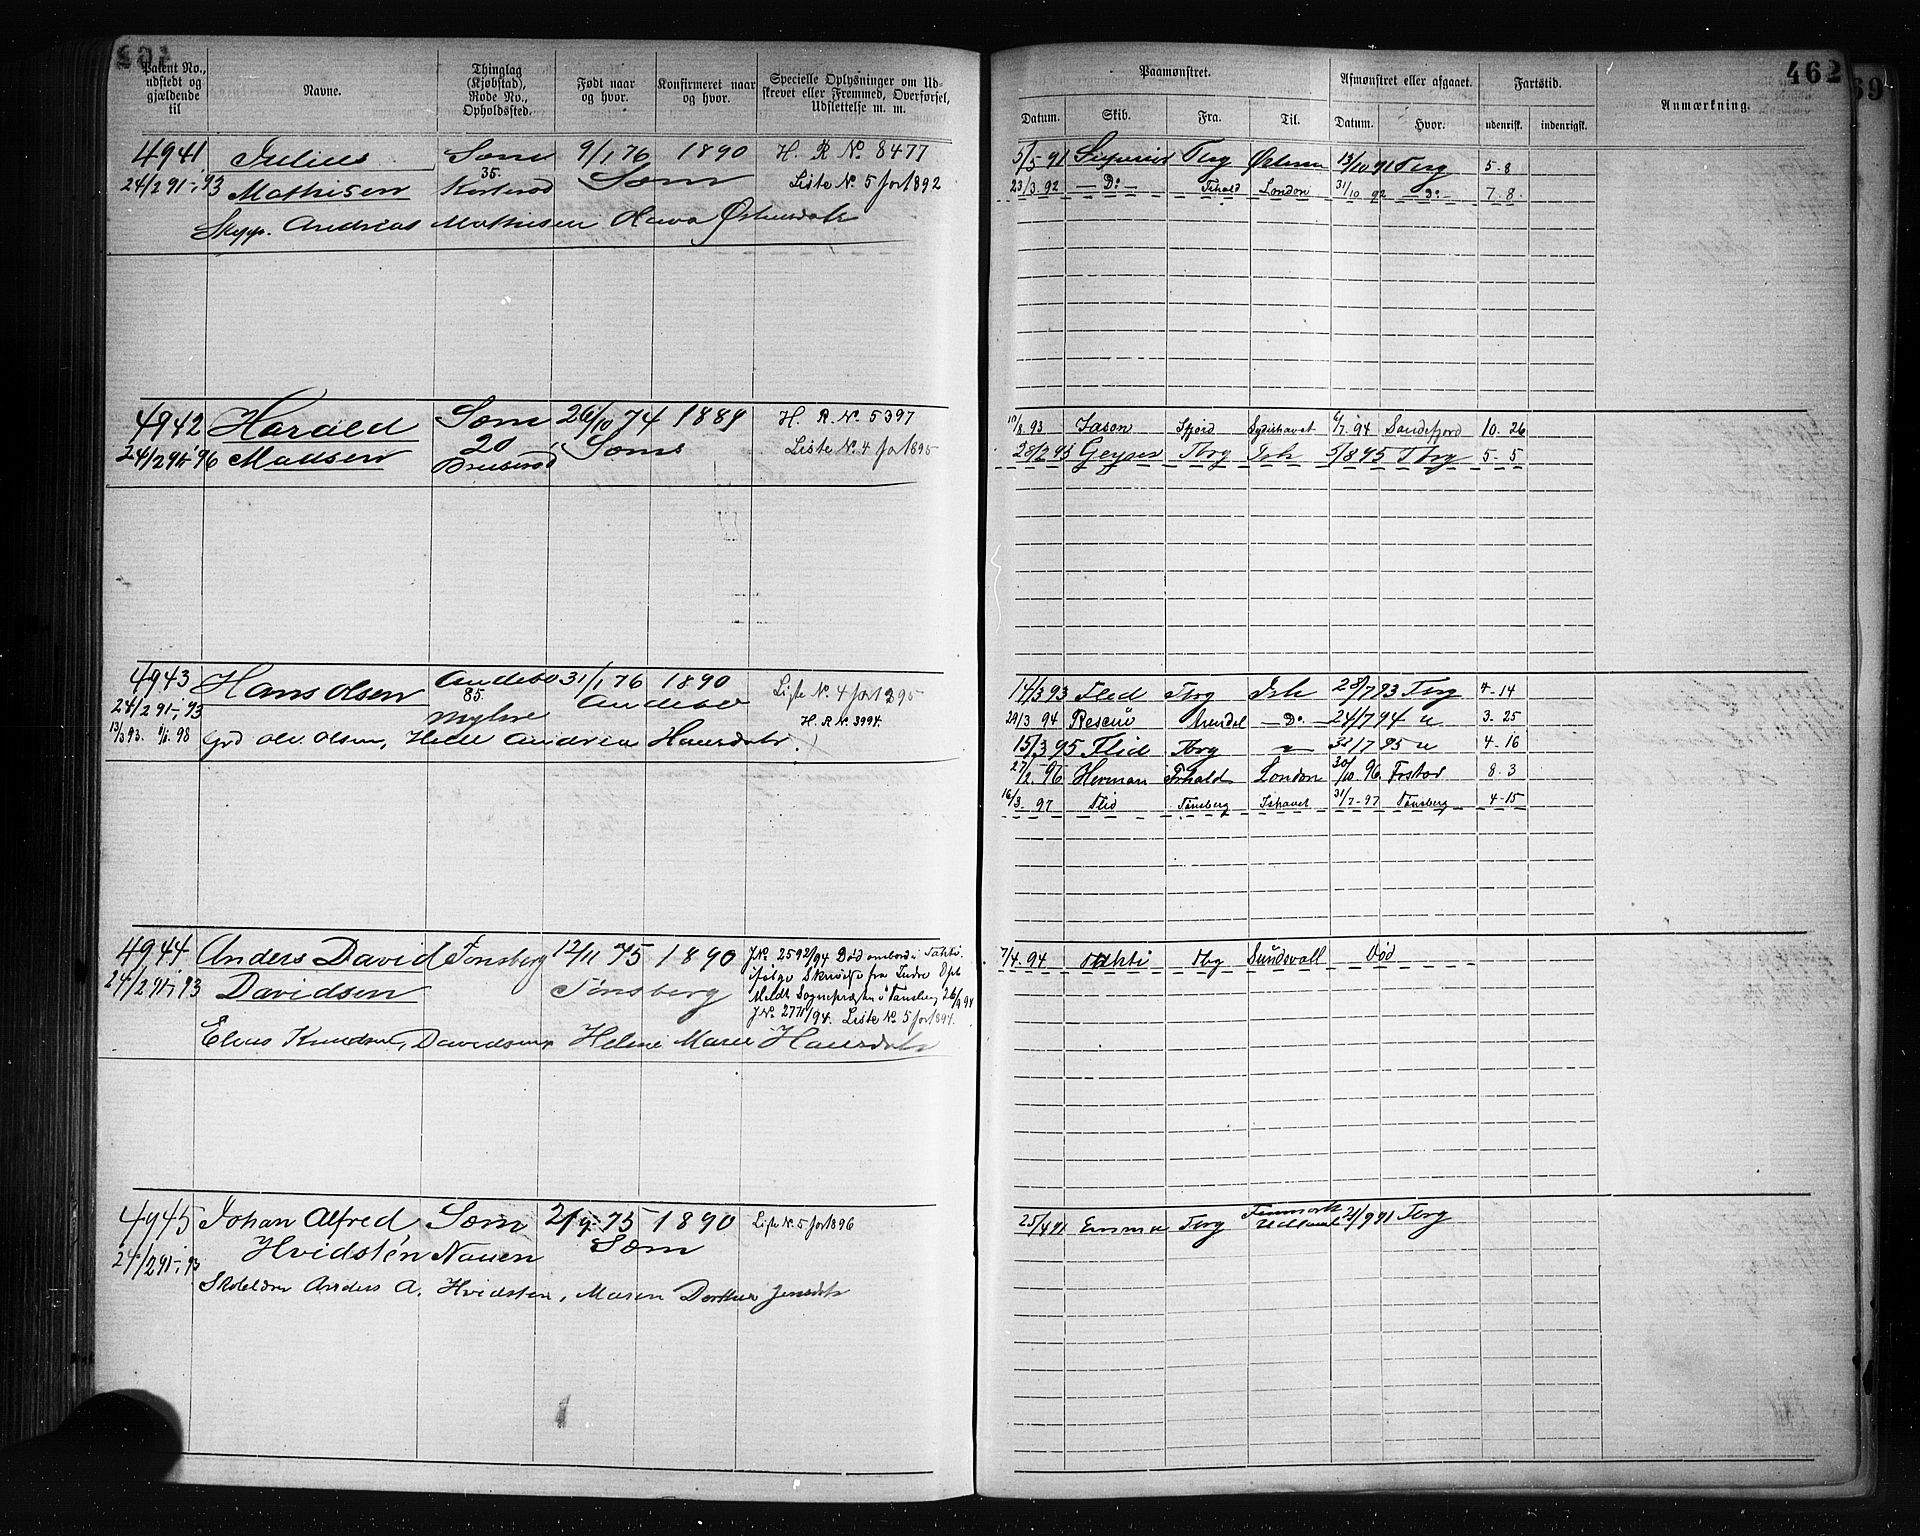 462
69
Patent No., udstedt og gjældende til
Navne.
Thinglag (Kjøbstad), Rode No., Opholdssted.
Født naar og hvor.
Konfirmeret naar og hvor.
Specielle Oplysninger om Udskrevet eller Frommed, Overførsel, Udslettelse m. m.
Paamønstret.
Afmønstret eller afgaaet.
Fartstid.
Anmærkning.
Datum.
Skib.
Fra.
Til.
Datum.
Hvor.
udenrisk.
indenrigsk.
4941 Julius Sæm 9/1 76 1890 H. R. No. 8477
24/2 91-93 Mathisen 35. Sæm Liste No. 5 for 1892
Skpp. Andreas Mathisen
5/5 91 Tbrg 13/10 91 Tbrg 5-8
23/3.92 -Do- Frhald London 31/10 92 -Do- 7-8.
4942 Harald Sæm 26/10 74 1889 H. R. No. 5397
24/2 91-96 Madsen 20 Sæm Liste No. 4 for 1895
10/8.93 Jason Sfjord Sydishavet 6/7.94 Sandefjord 10.26
28/2 95 Geyser Tbrg Ish 5/8 95 Tbrg 5-5
4943 Hans Olsen Andebo 31/1 76 1890 Liste No. 4 for 1895
24/2 91-93 85. Andebo H. R. No. 3994.
13/3 93. 1/1. 98 Grd Ole Olsen, Andrea Hansdatr.
14/3 93 Flid Tbrg Ish 28/7 93 Tbrg 4-14
29/3 94 Rescue Arendal -Do- 24/7 94 " 3.25
15/3 95 Flid Tbrg " /7 95 " 4-16
27/2. 96 Herman Frhald London 30/10 96 Frstad 8.3
16/3. 97 Flid Tønsberg Ishavet 31/7-97 Tønsberg 4-15
4944 Anders David Tønsberg 12/11 75 1890 J.No. 2592/94 Død ombord i
24/2 91-93 Davidsen Tønsberg ifølge Skrivelse fra Indre Opl.
Meldt Sognepræsten i Tønsberg 26/9 94
J.No. 2771/94. Liste No. 5 for 1894.
Elias Knudsen, Davidsen, Helene Marie Hansdatr
7/4.94 Tbrg Sundsvall Død
4945 Johan Alfred Sæm 2/9.75 1890 Liste No. 5 for 1896
24/2 91-93 Hvidstén Nauen Sæm
Anders A. Hvidsten, Maren Dorthea Jensdatr
25/4 91 Emma Tbrg Finmark 21/9 91 Tbrg
Udland